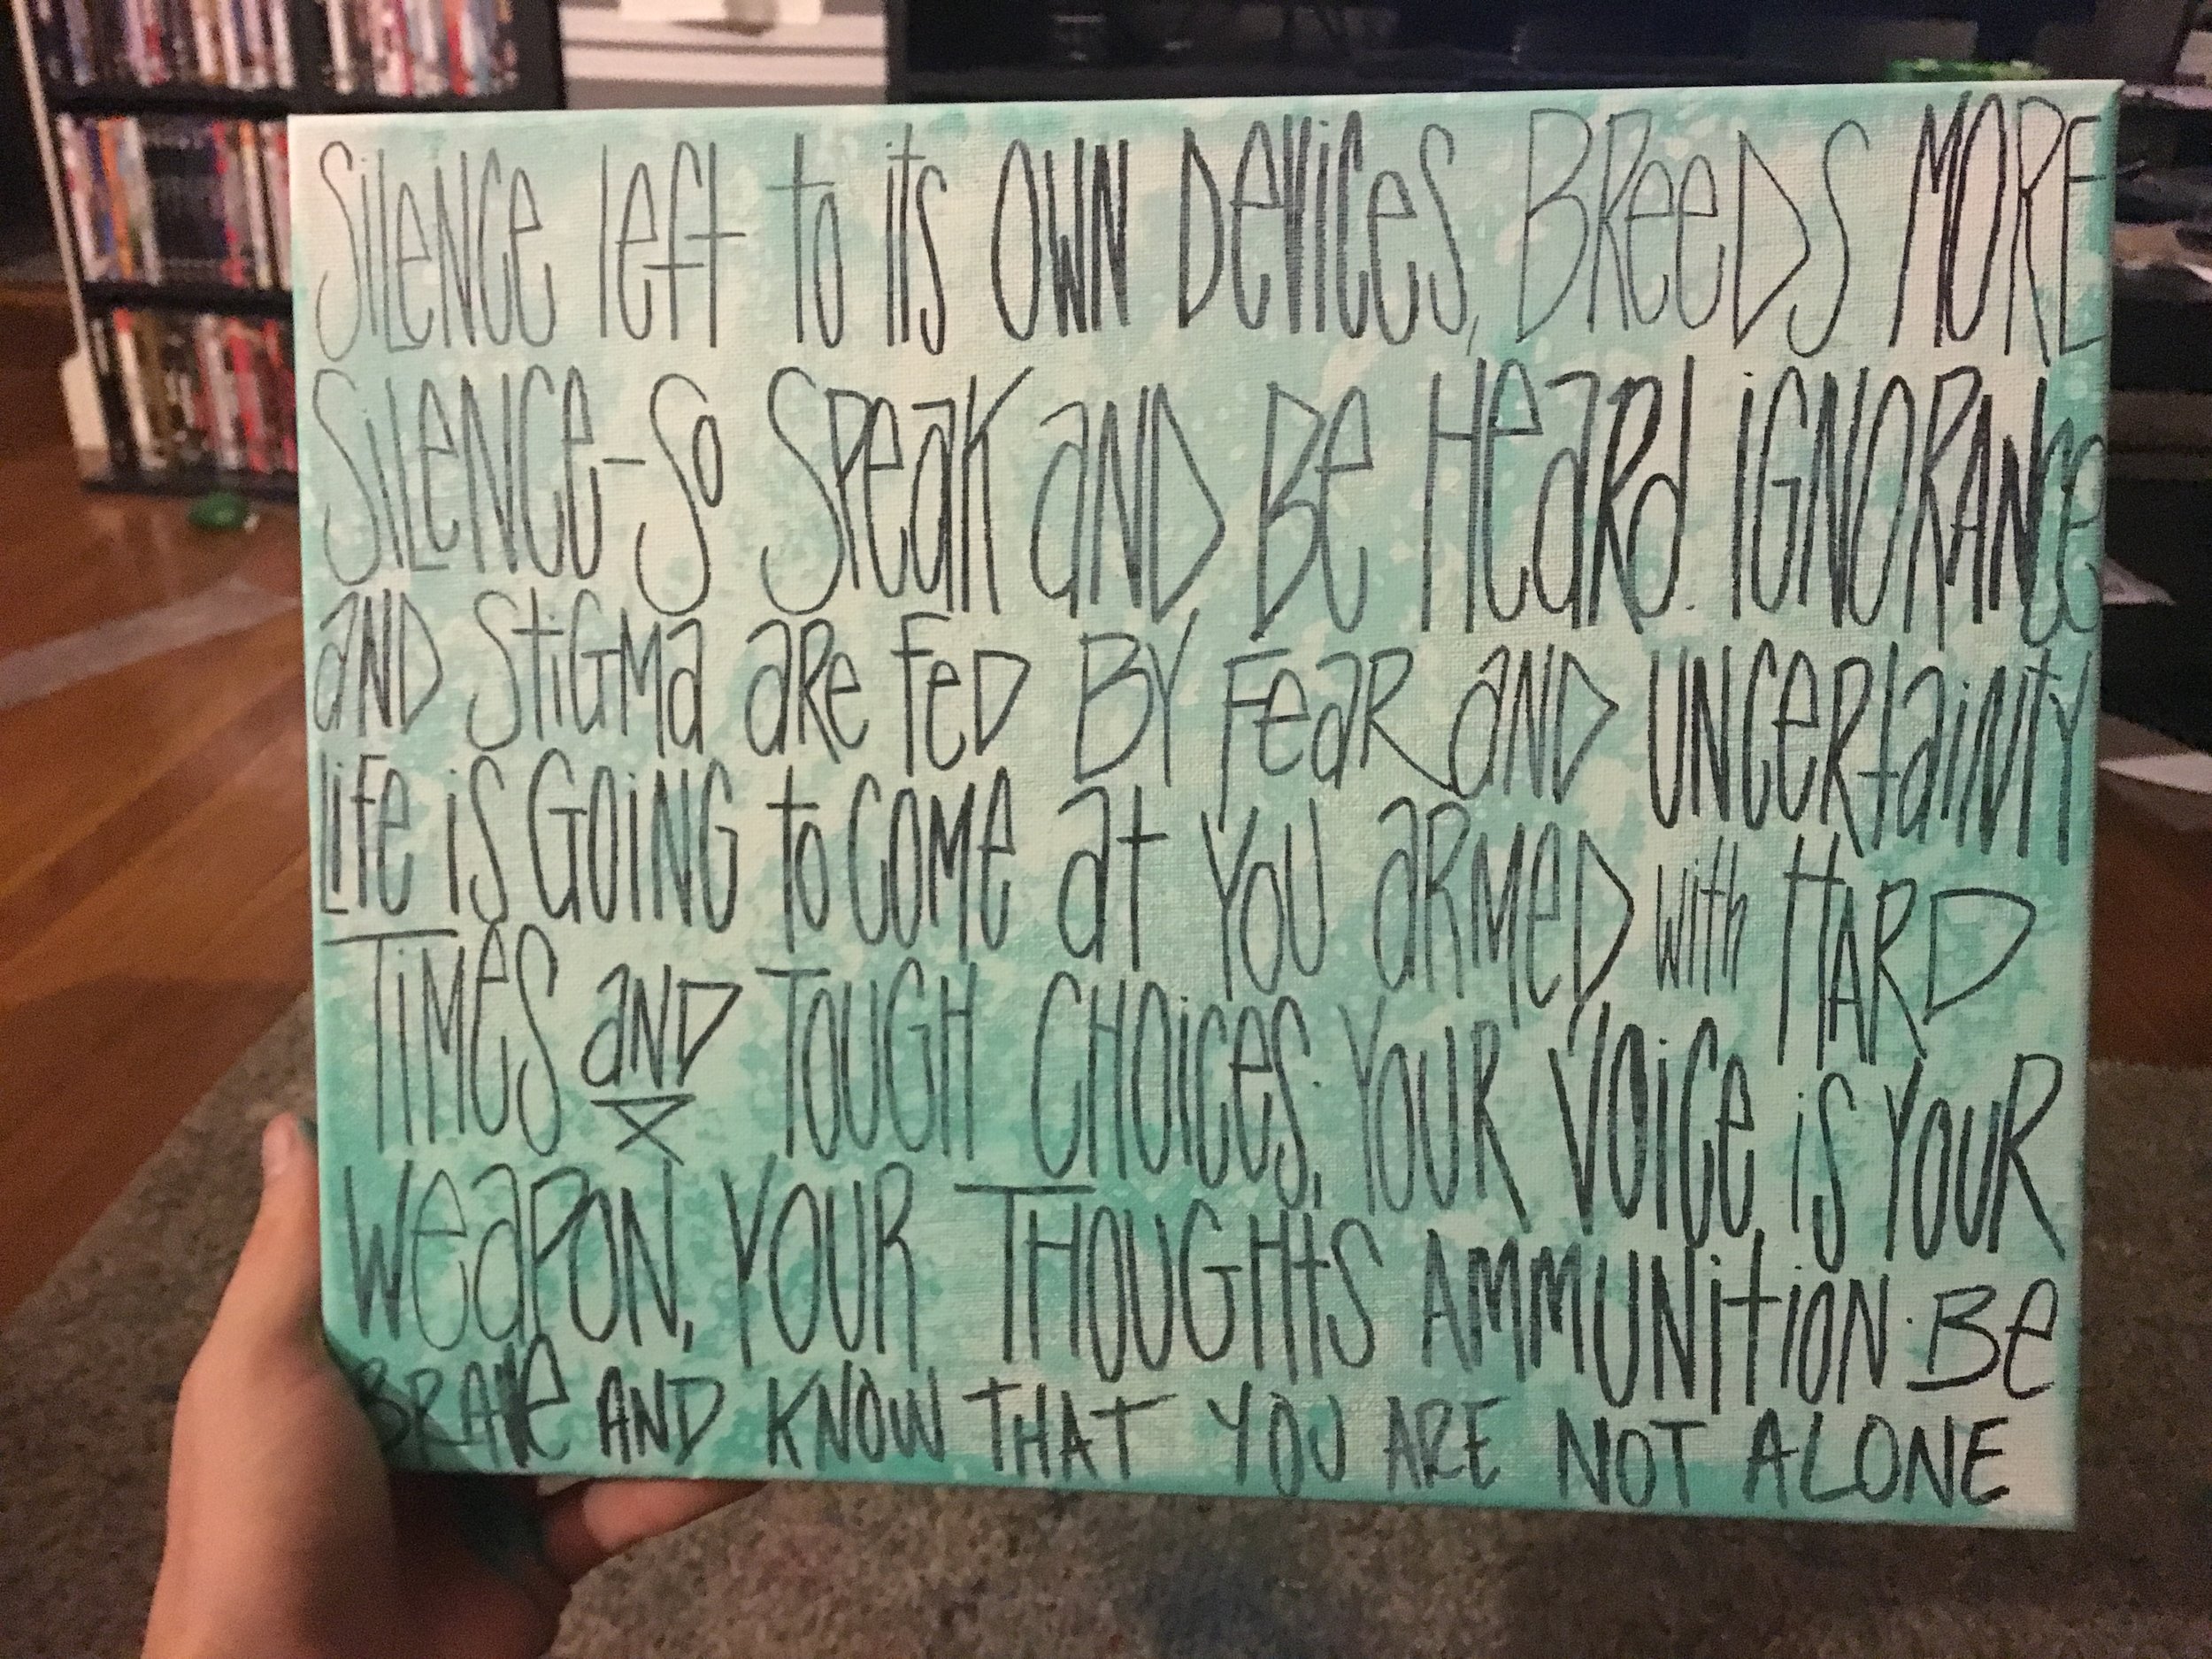 SiLENCe left to its OWN DeViCeS, BReeDS MORE
SiLeNCe-So SPeaK aND Be HeaRd. iGNORANce
aND StiGMa aRe FeD BY FeaR aND UNCeRtaiNtY
LiFe iS GOiNG to COMe at YOU aRMeD with HARD
TiMeS aND TOUGH CHOiCeS, YOUR VOiCe iS YOUR
WeaPON, YOUR THOUGHtS AMMUNitiON. Be
BRAVe AND KNOW THAT YOU ARE NOT ALONE